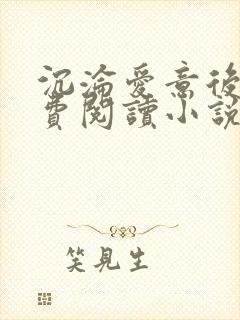 沉淪愛意後
費閱讀小説
笑見生